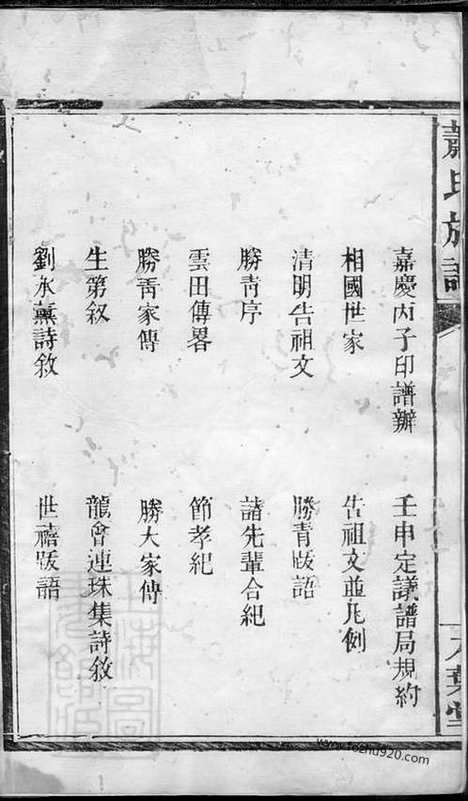 蕭氏族譜
嘉慶丙子印譜辦
壬申定議譜局規約
相國世家
告祖文並凡例
清明告祖文
勝青跋語
勝青序
諸先輩合紀
雲田傳畧
節孝紀
勝青家傳
勝大家傳
生第叙
龍會連珠集詩敘
劉氷薰詩敘
世禧跋語
八葉堂
www.fozhu920.com